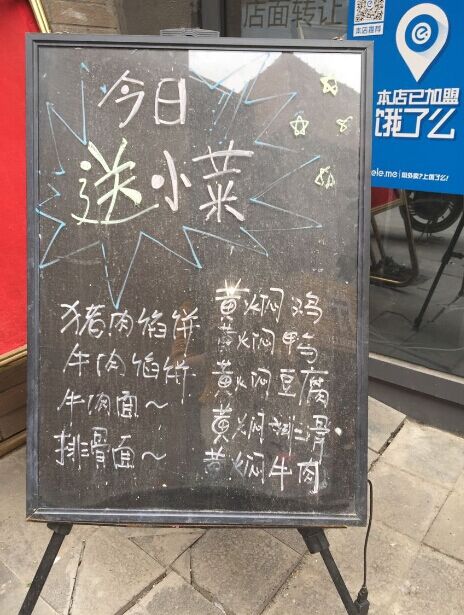 今日
送小菜
猪肉馅饼
牛肉馅饼
牛肉面～
排骨面～
黄焖鸡
黄焖鸭
黄焖豆腐
黄焖排骨
黄焖牛肉
店面转让
本店推荐
本店已加盟
饿了么
ele.me 叫外卖？上饿了么！